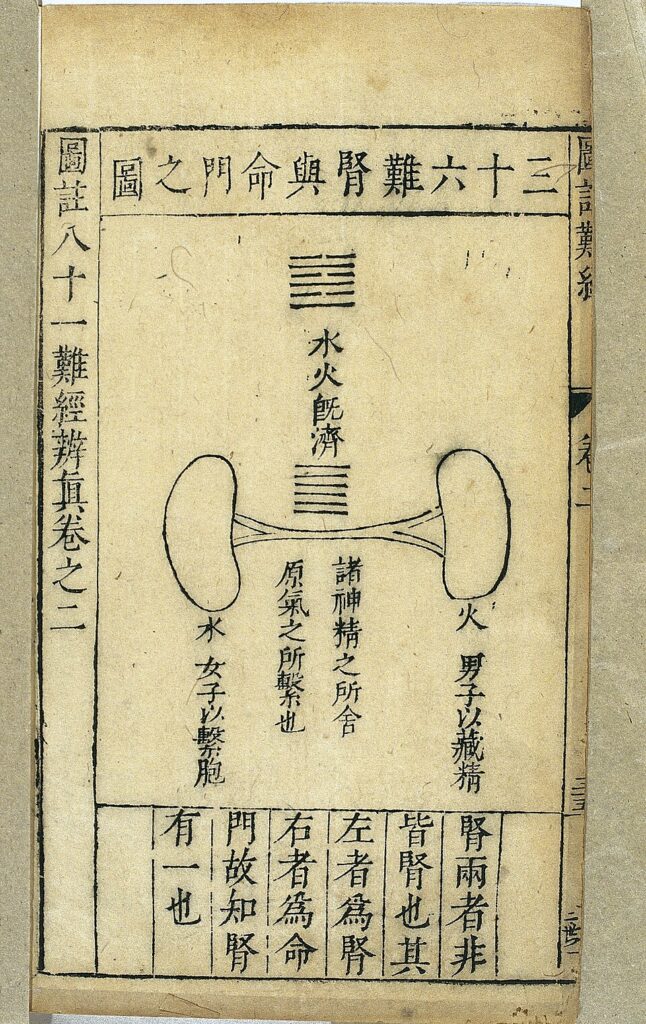 圖註難經
卷二
三十六難腎與命門之圖
水火既濟
火 男子以藏精
諸神精之所舍
原氣之所繫也
水 女子以繫胞
腎兩者非
皆腎也其
左者為腎
右者為命
門故知腎
有一也
圖註八十一難經辨真卷之二